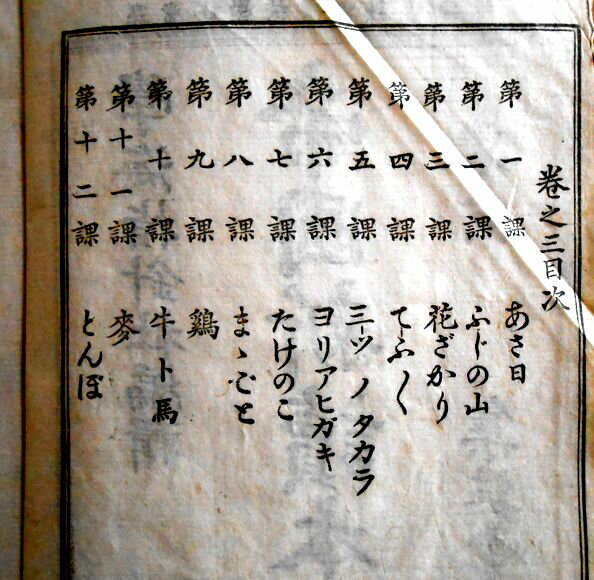 卷之三目次
第一課 あさ日
第二課 ふじの山
第三課 花ざかり
第四課 てふ〳〵
第五課 三ーツノタカラ
第六課 ヨリアヒガキ
第七課 たけのこ
第八課 まゝごと
第九課 鷄
第十課 牛ト馬
第十一課 麥
第十二課 とんぼ